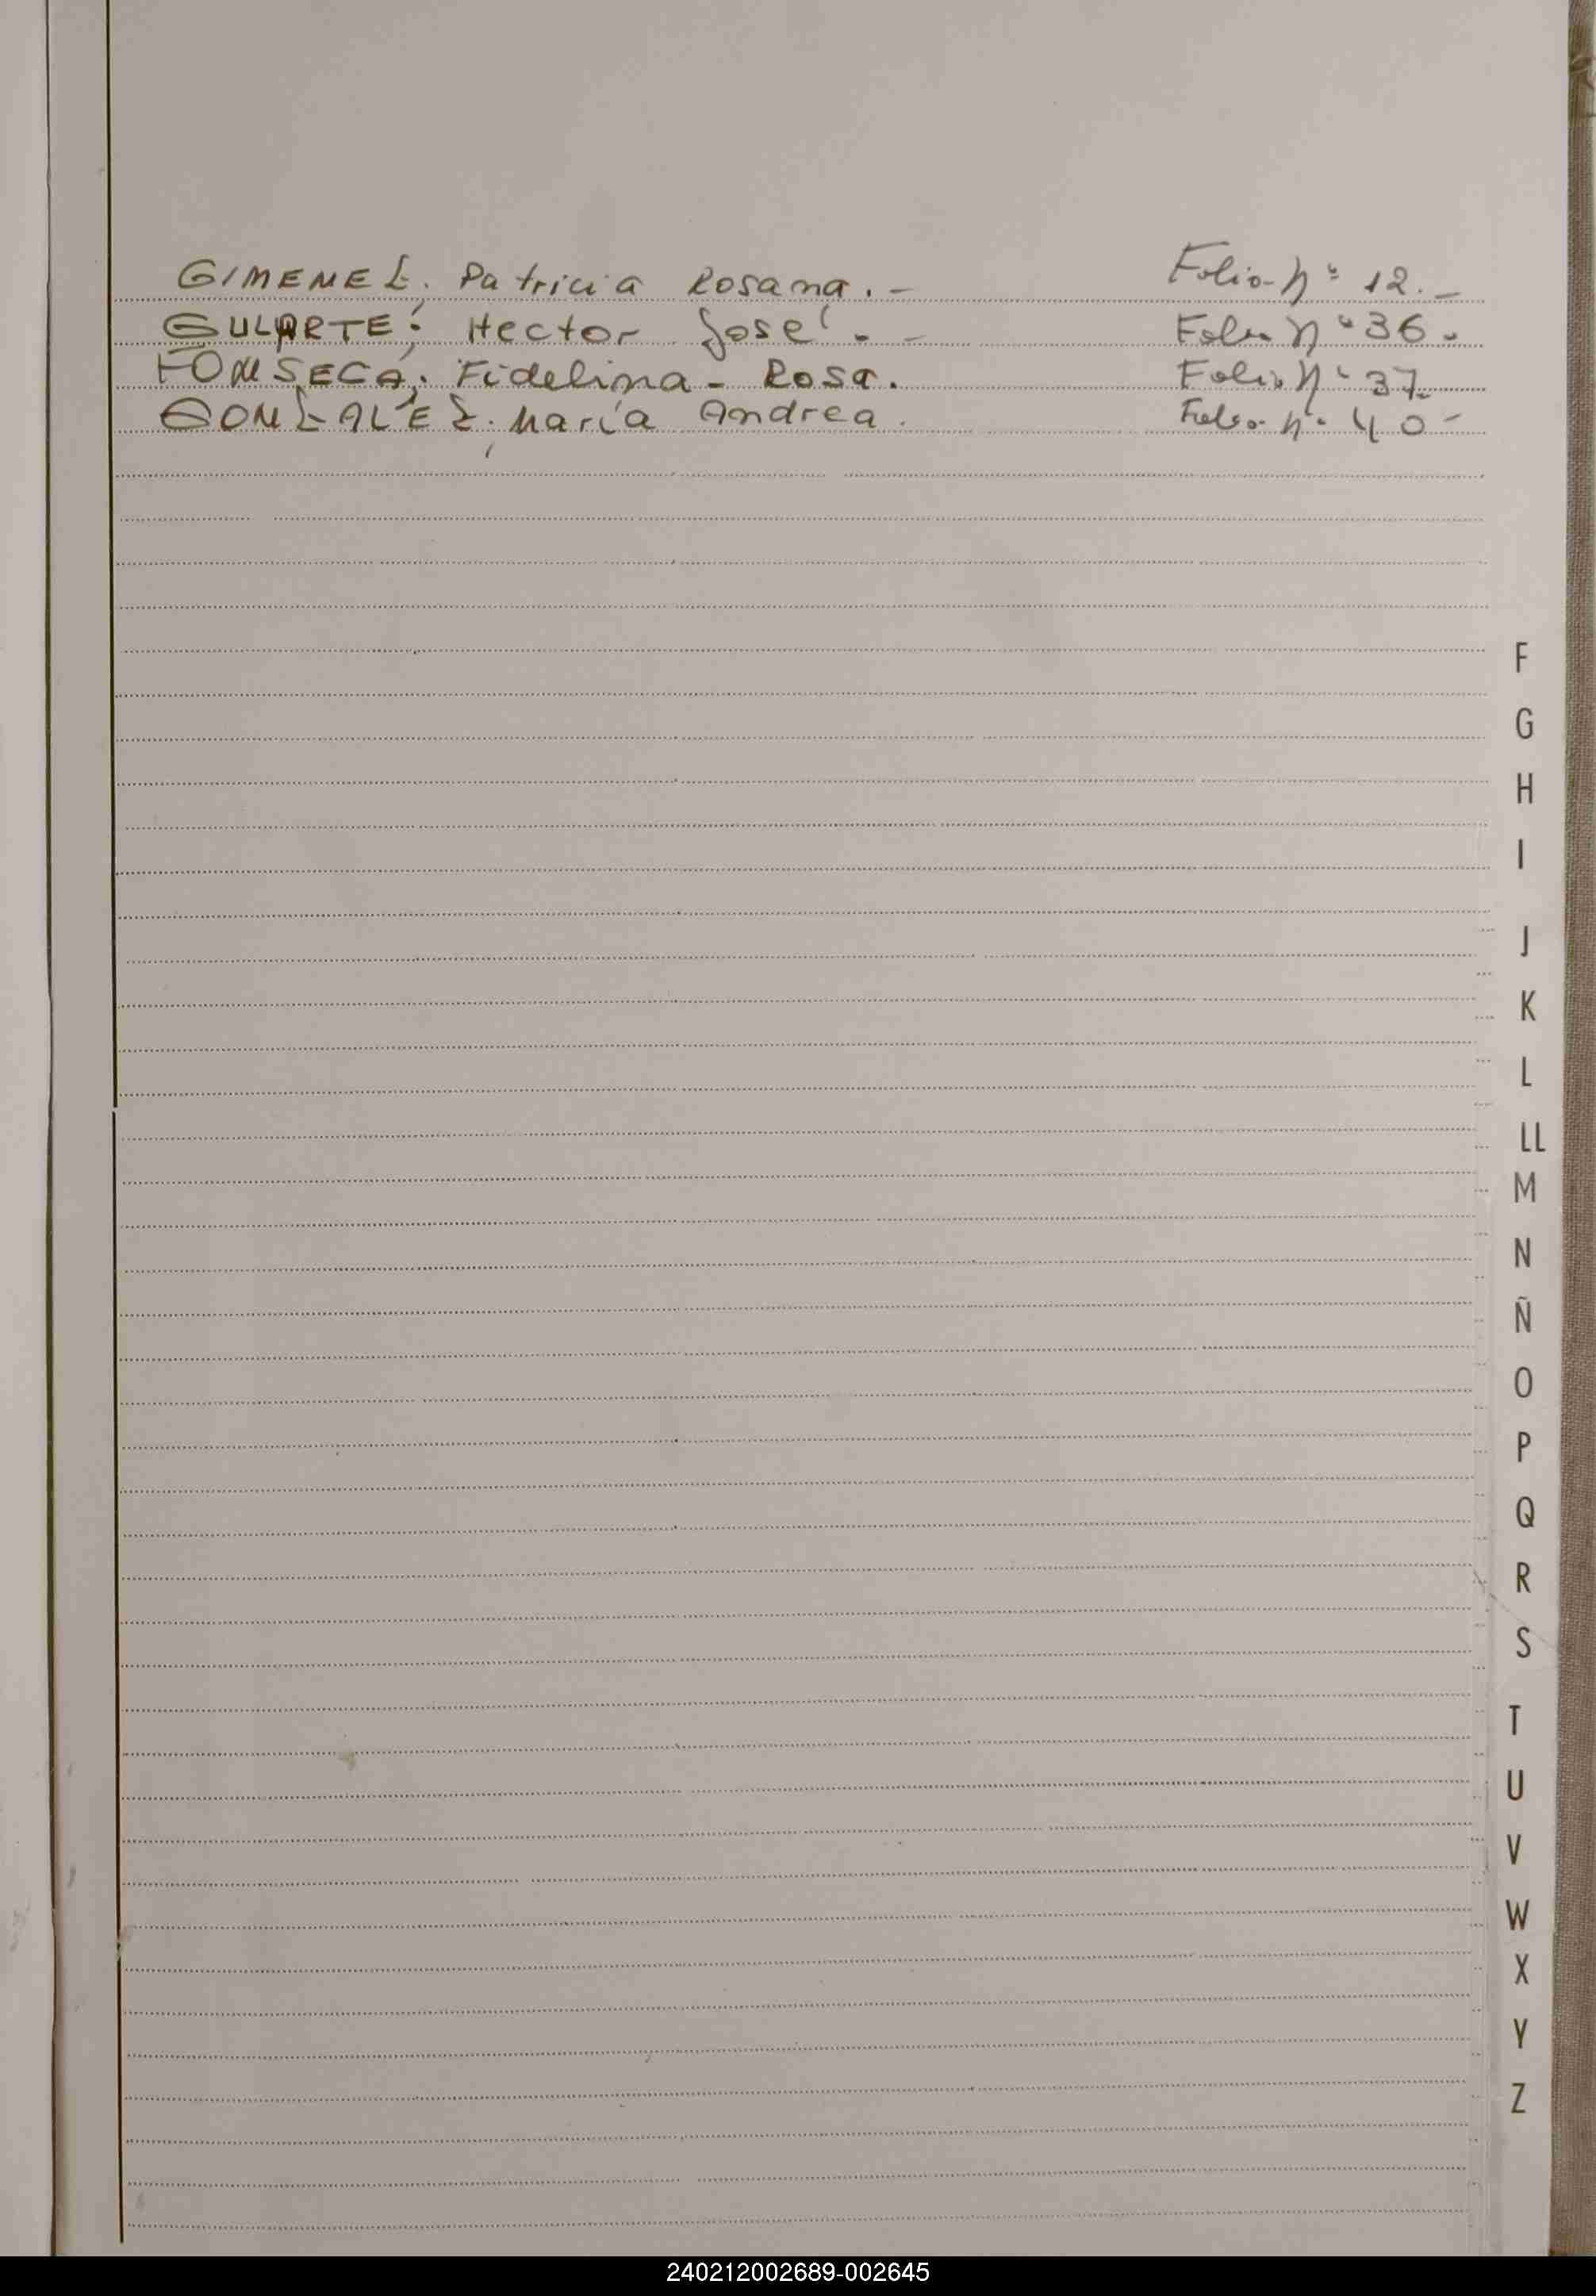 GIMENEZ. Patricia Rosana. - Folio Nº 12. -
GULARTE: Hector José. - Folio Nº 36.
FONSECA, Fidelina - Rosa. Folio Nº 37.
GONZALEZ. María Andrea. Folio Nº 40 -
F
G
H
I
J
K
L
LL
M
N
Ñ
O
P
Q
R
S
T
U
V
W
X
Y
Z
240212002689-002645